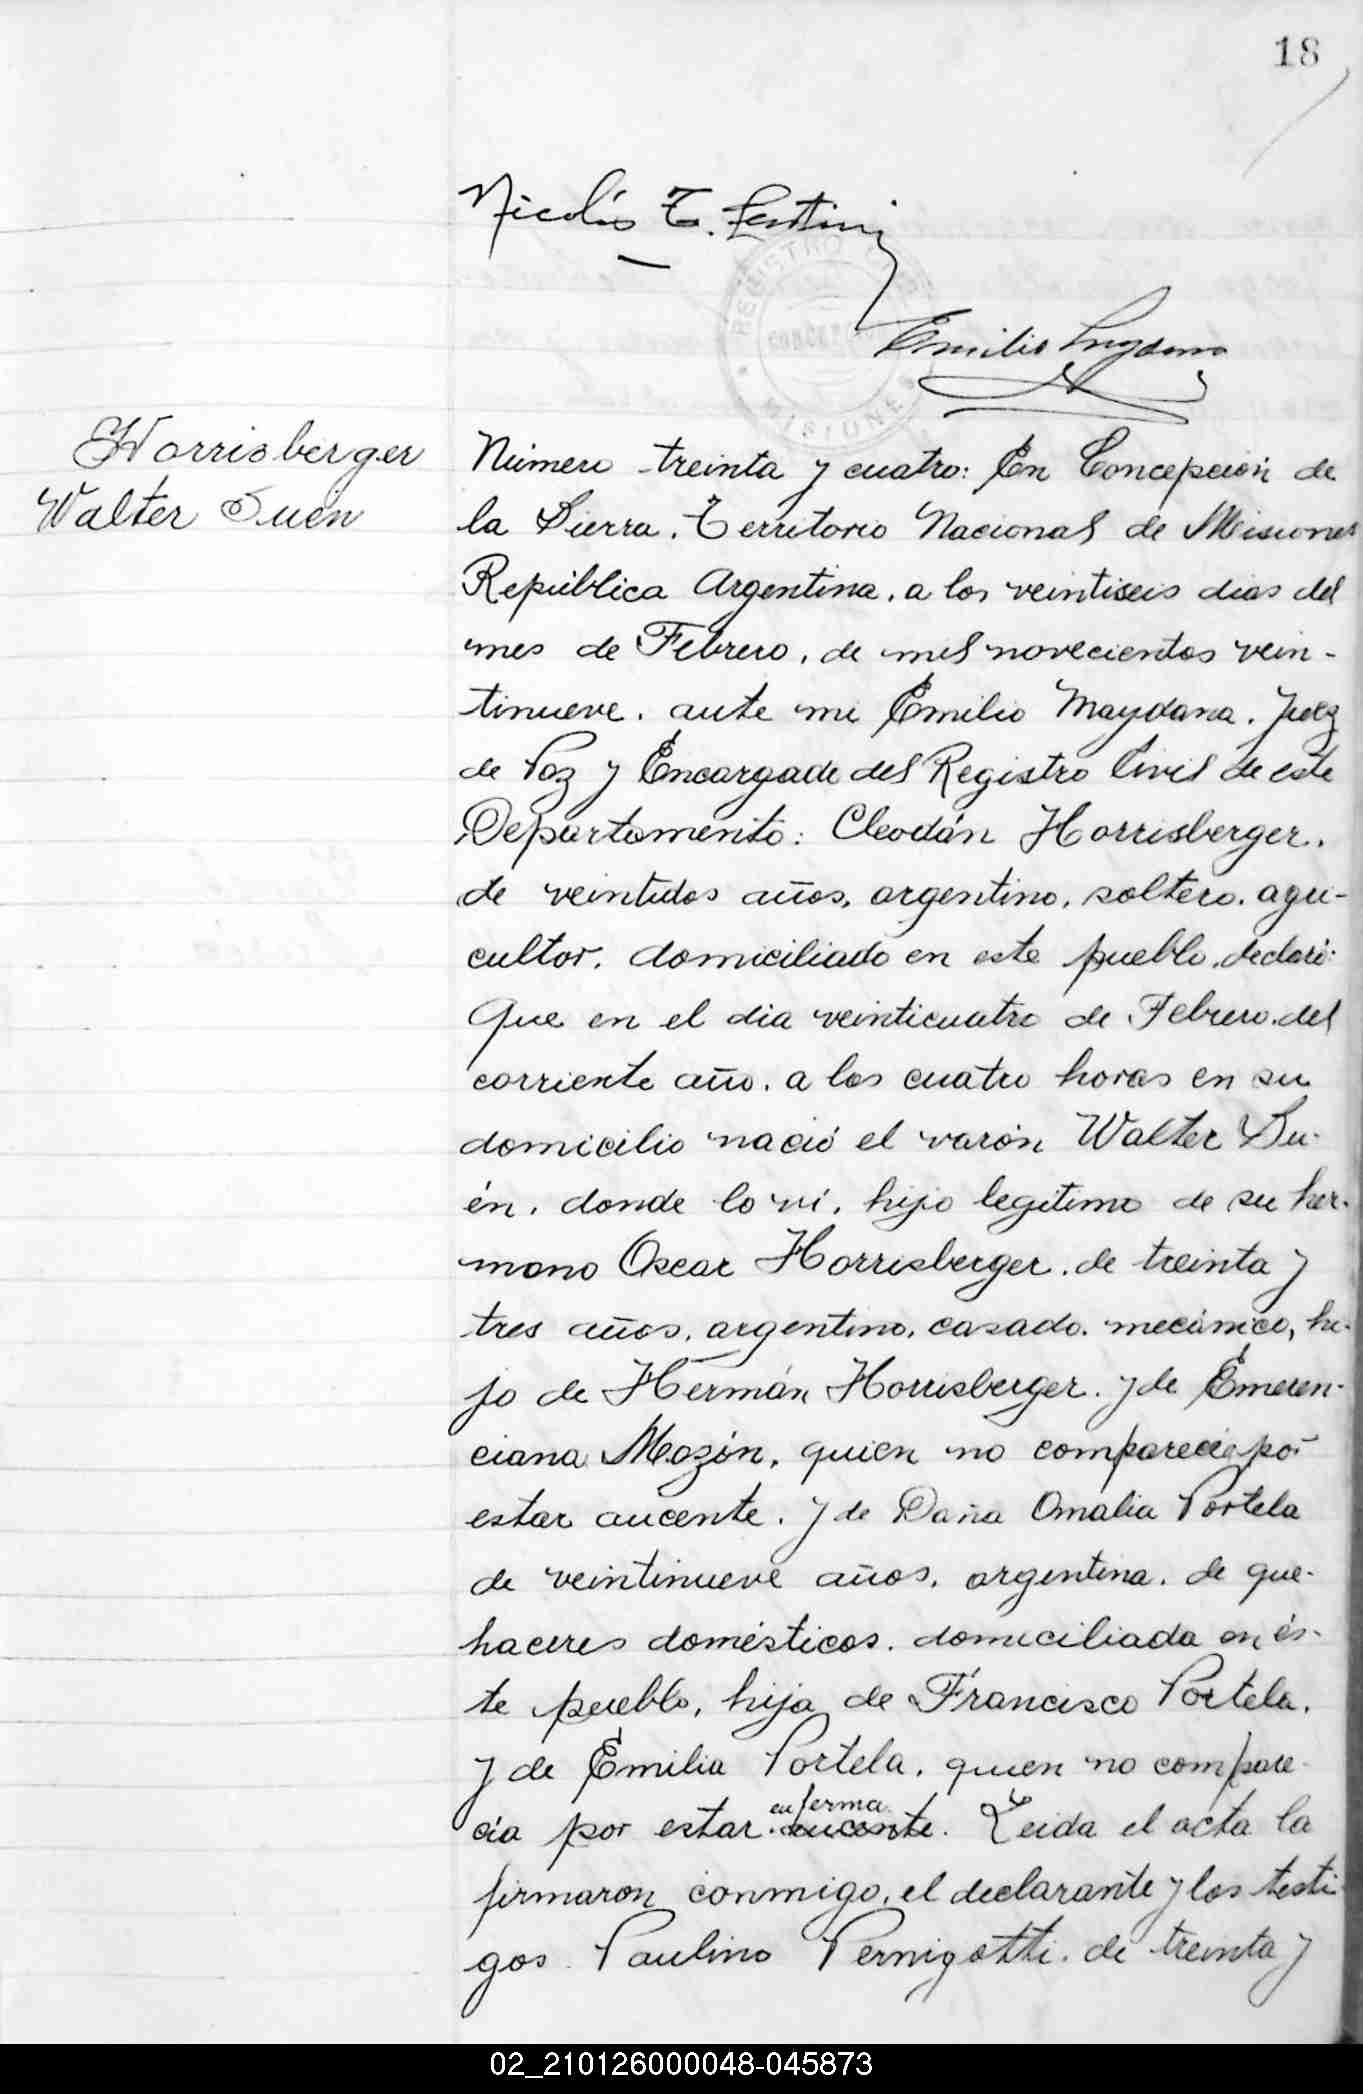 18
Nicolás T.
REGISTRO
MISIONE
Emilio
Horrisberger
Walter Suén
Número treinta y cuatro: En Concepción de
la Sierra. Territorio Nacional de Misiones
República Argentina, a los veintiseis dias del
mes de Febrero, de mil novecientos vein-
tinueve. ante mi Emilio Maydana. Juez
de Paz y Encargado del Registro Civil de este
Departamento: Cleodán Horrisberger.
de veintidos años, argentino, soltero. agri-
cultor. domiciliado en este pueblo, declaró:
Que en el dia veinticuatro de Febrero del
corriente año. a las cuatro horas en su
domicilio nació el varón Walter Su-
én, donde lo ví, hijo legitimo de su her-
mano Oscar Horrisberger. de treinta y
tres años, argentino, casado. mecánico, hi-
jo de Hermán Horrisberger. y de Emeren-
ciana Mazón, quien no comparecia por
estar aucente. y de Doña Omalia Portela
de veintinueve años, argentina. de que-
haceres domésticos. domiciliada en és-
te pueblo, hija de Francisco Portela.
y de Emilia Portela, quien no compare-
enferma
cia por estar aucente. Leida el acta la
firmaron conmigo, el declarante y los testi-
gos Paulino Pernigotti. de treinta y
02_210126000048-045873